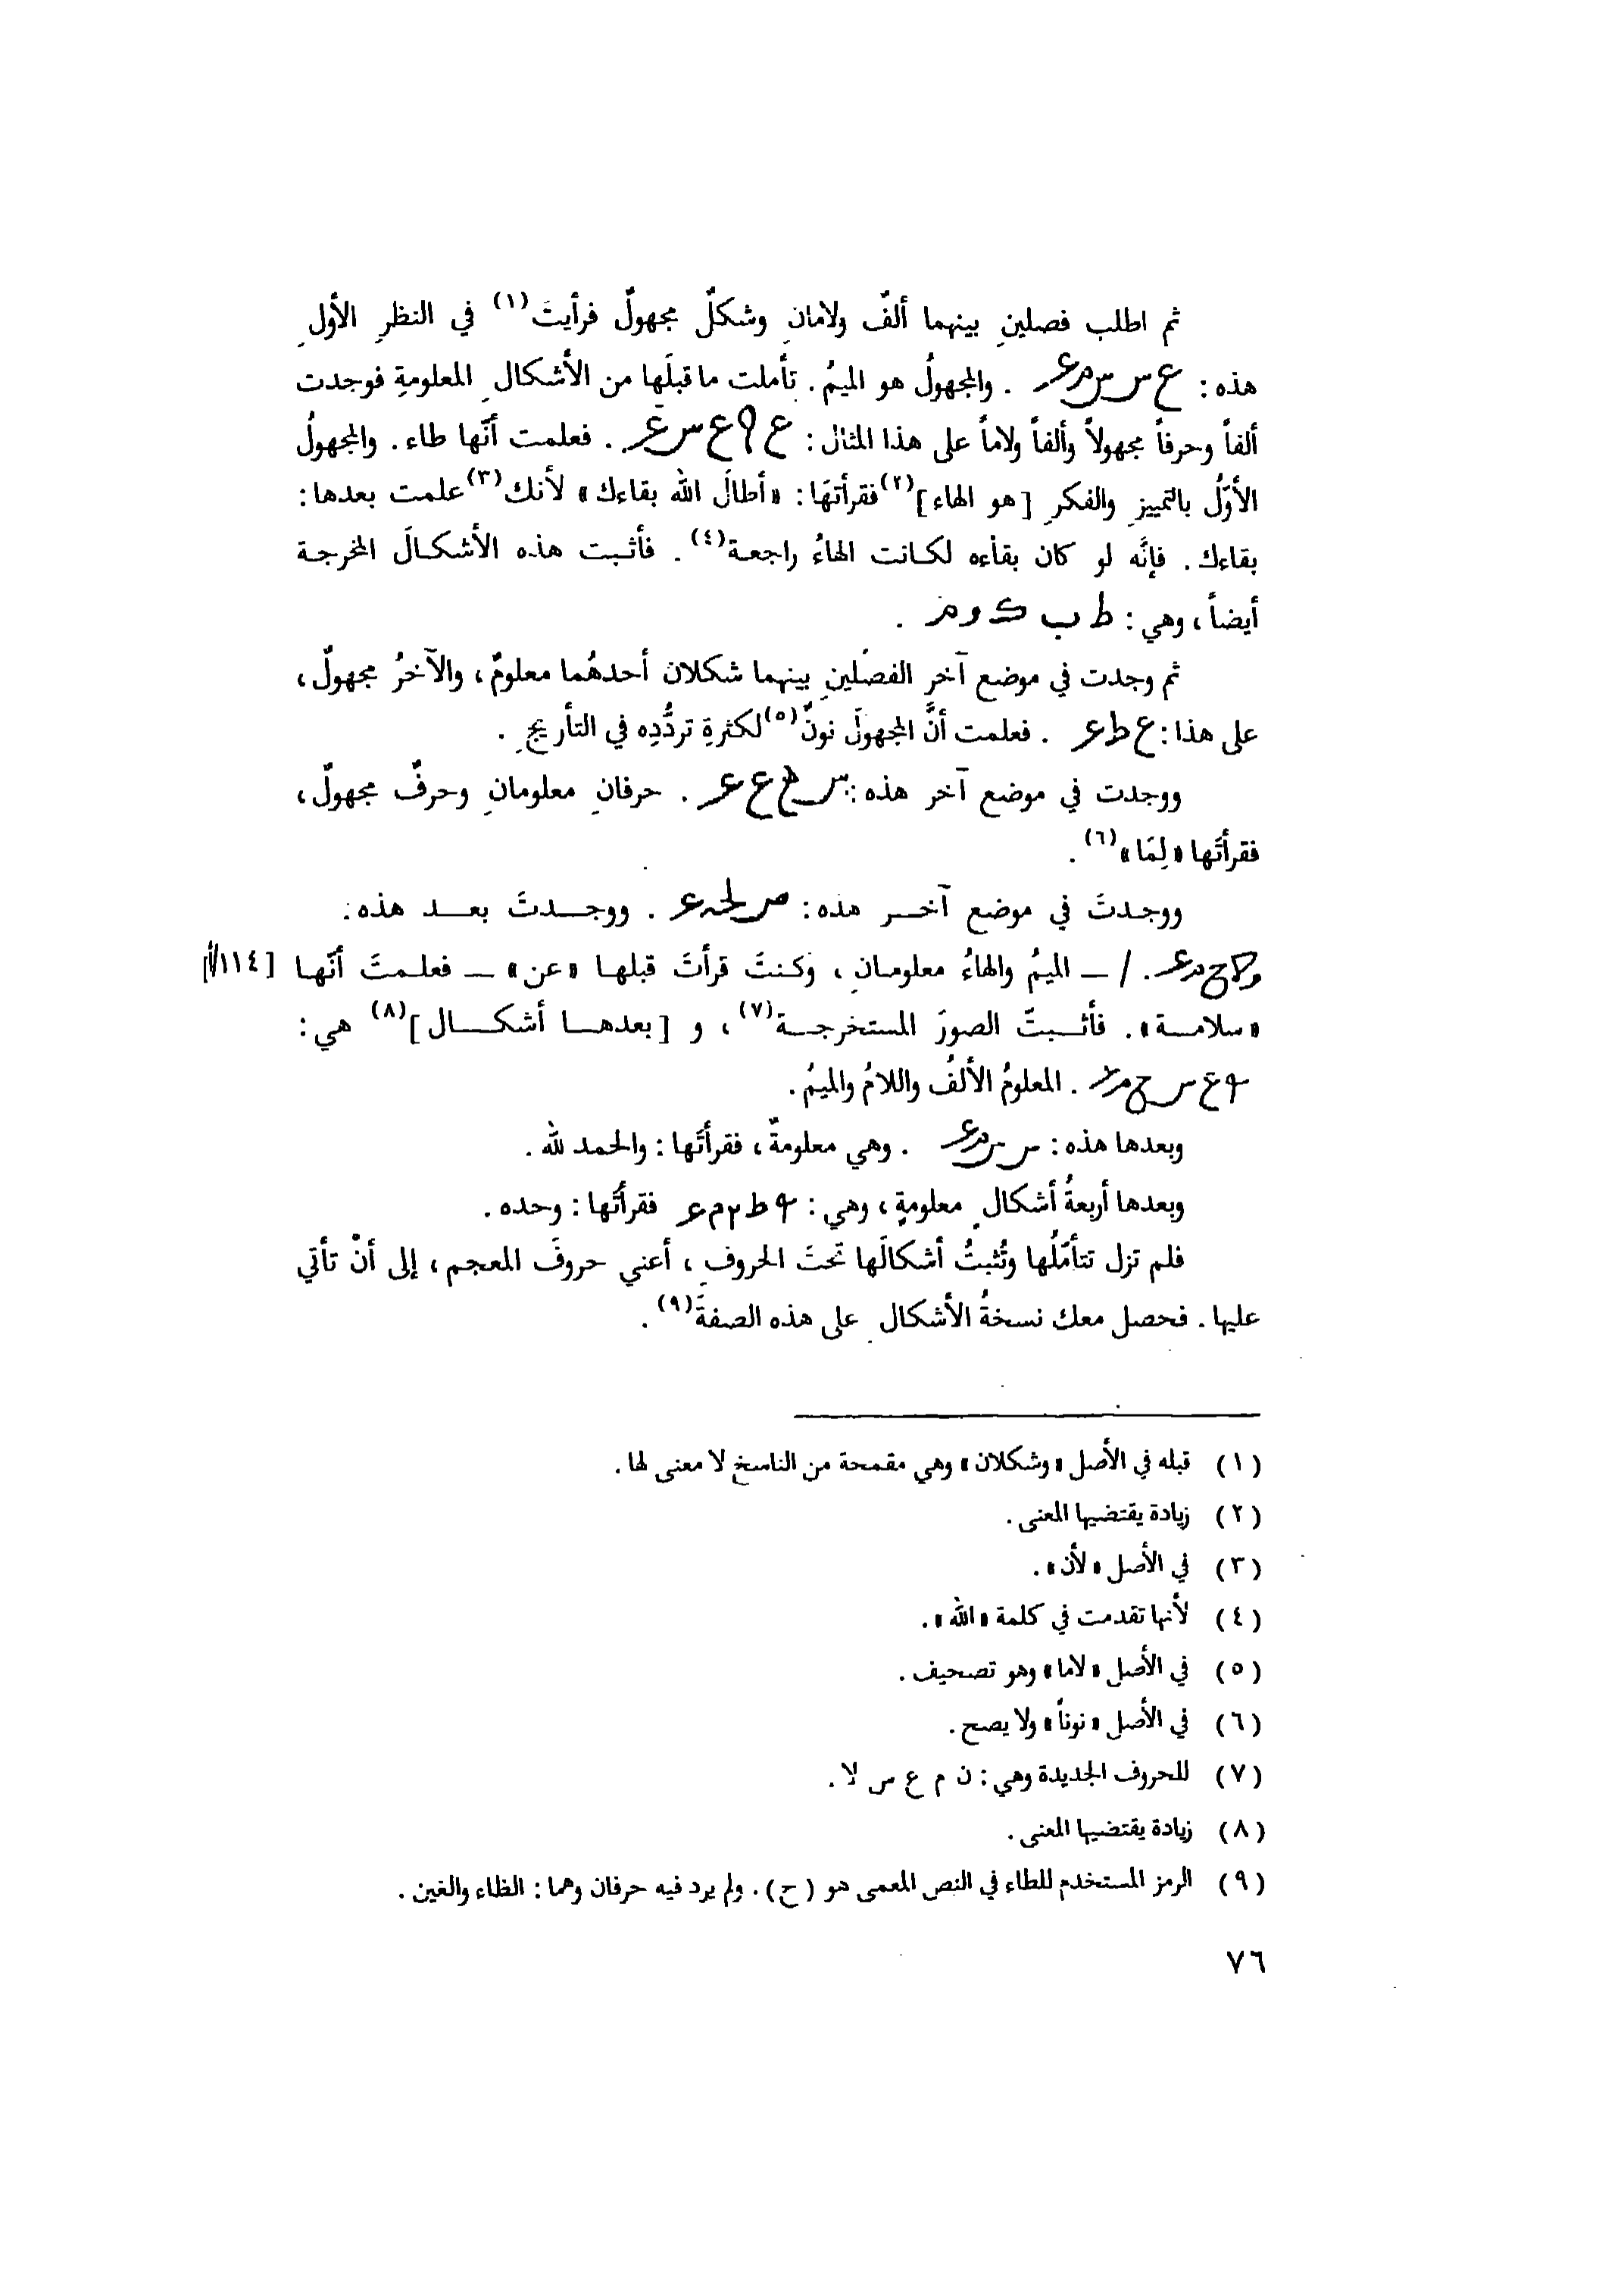 ثم اطلب فصلينِ بينهما ألفٌ ولامانِ وشكلٌ مجهولٌ فرأيتَ(١) في النظرِ الأولِ
هذه : . والمجهولُ هو الميمُ . تأملت ما قبلَها من الأشكالِ المعلومةِ فوجدت
ألفاً وحرفاً مجهولاً وألفاً ولاماً على هذا المثال : . فعلمت أنّها طاء . والمجهولُ
الأوّلُ بالتمييزِ والفكرِ [ هو الهاء ](٢) فقرأتهَا : « أطالَ الله بقاءك » لأنك(٣) علمت بعدها :
بقاءك . فإنَّه لو كان بقاءه لكانت الهاءُ راجعة(٤) . فأثبت هذه الأشكالَ المخرجة
أيضاً ، وهي : ط ب ك و م .
ثم وجدت في موضع آخر الفصلينِ بينهما شكلان أحدهُما معلومٌ ، والآخرُ مجهولٌ ،
على هذا : . فعلمت أنَّ المجهولَ نونٌ(٥) لكثرةِ تردُّدِه في التأريخِ .
ووجدت في موضع آخر هذه : . حرفانِ معلومانِ وحرفٌ مجهولٌ ،
فقرأتَها « لِمَا »(٦) .
ووجدتَ في موضع آخر هذه : . ووجدتَ بعد هذه :
. / ــ الميمُ والهاءُ معلومانِ ، وكنتَ قرأتَ قبلها « عن » ــ فعلمتَ أنّها [ ١١٤/أ]
« سلامة » . فأثبتّ الصورَ المستخرجة(٧) ، و [ بعدها أشكال ](٨) هي :
. المعلومُ الألفُ واللامُ والميمُ .
وبعدها هذه : . وهي معلومةٌ ، فقرأتَها : والحمد لله .
وبعدها أربعةُ أشكالٍ معلومةٍ ، وهي : فقرأتَها : وحده .
فلم تزل تتأمّلُها وتُثبتُ أشكالَها تحتَ الحروفِ ، أعني حروفَ المعجم ، إلى أنْ تأتي
عليها . فحصل معك نسخةُ الأشكالِ على هذه الصفة(٩) .
(١) قبله في الأصل « وشكلان » وهي مقمحة من الناسخ لا معنى لها .
(٢) زيادة يقتضيها المعنى .
(٣) في الأصل « لأن » .
(٤) لأنها تقدمت في كلمة « الله » .
(٥) في الأصل « لاما » وهو تصحيف .
(٦) في الأصل « نوناً » ولا يصح .
(٧) للحروف الجديدة وهي : ن م ع س لا .
(٨) زيادة يقتضيها المعنى .
(٩) الرمز المستخدم للطاء في النص المعمى هو ( ح ) . ولم يرد فيه حرفان وهما : الظاء والغين .
٧٦